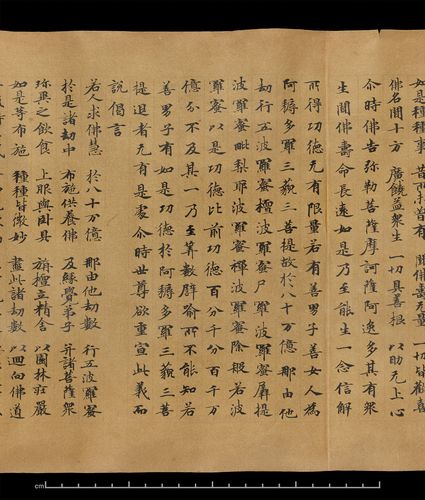 如是種種事 昔所未曾有 聞佛壽无量 一切皆歡喜
佛名聞十方 廣饒益衆生 一切具善根 以助无上心
尒時佛告弥勒菩薩摩訶薩阿逸多其有衆
生聞佛壽命長遠如是乃至能生一念信解
所得功德无有限量若有善男子善女人為
阿耨多羅三藐三菩提故於八十万億那由他
劫行五波羅蜜檀波羅蜜尸羅波羅蜜羼提
波羅蜜毗梨耶波羅蜜禪波羅蜜除般若波
羅蜜以是功德比前功德百分千分百千万
億分不及其一乃至筭數譬喻所不能知若
善男子有如是功德於阿耨多羅三藐三菩
提退者无有是處尒時世尊欲重宣此義而
說偈言
若人求佛慧 於八十万億 那由他劫數 行五波羅蜜
於是諸劫中 布施供養佛 及緣覺弟子 并諸菩薩衆
珎異之飲食 上服與卧具 旃檀立精舍 以園林莊嚴
如是等布施 種種皆微妙 盡此諸劫數 以迴向佛道
cm